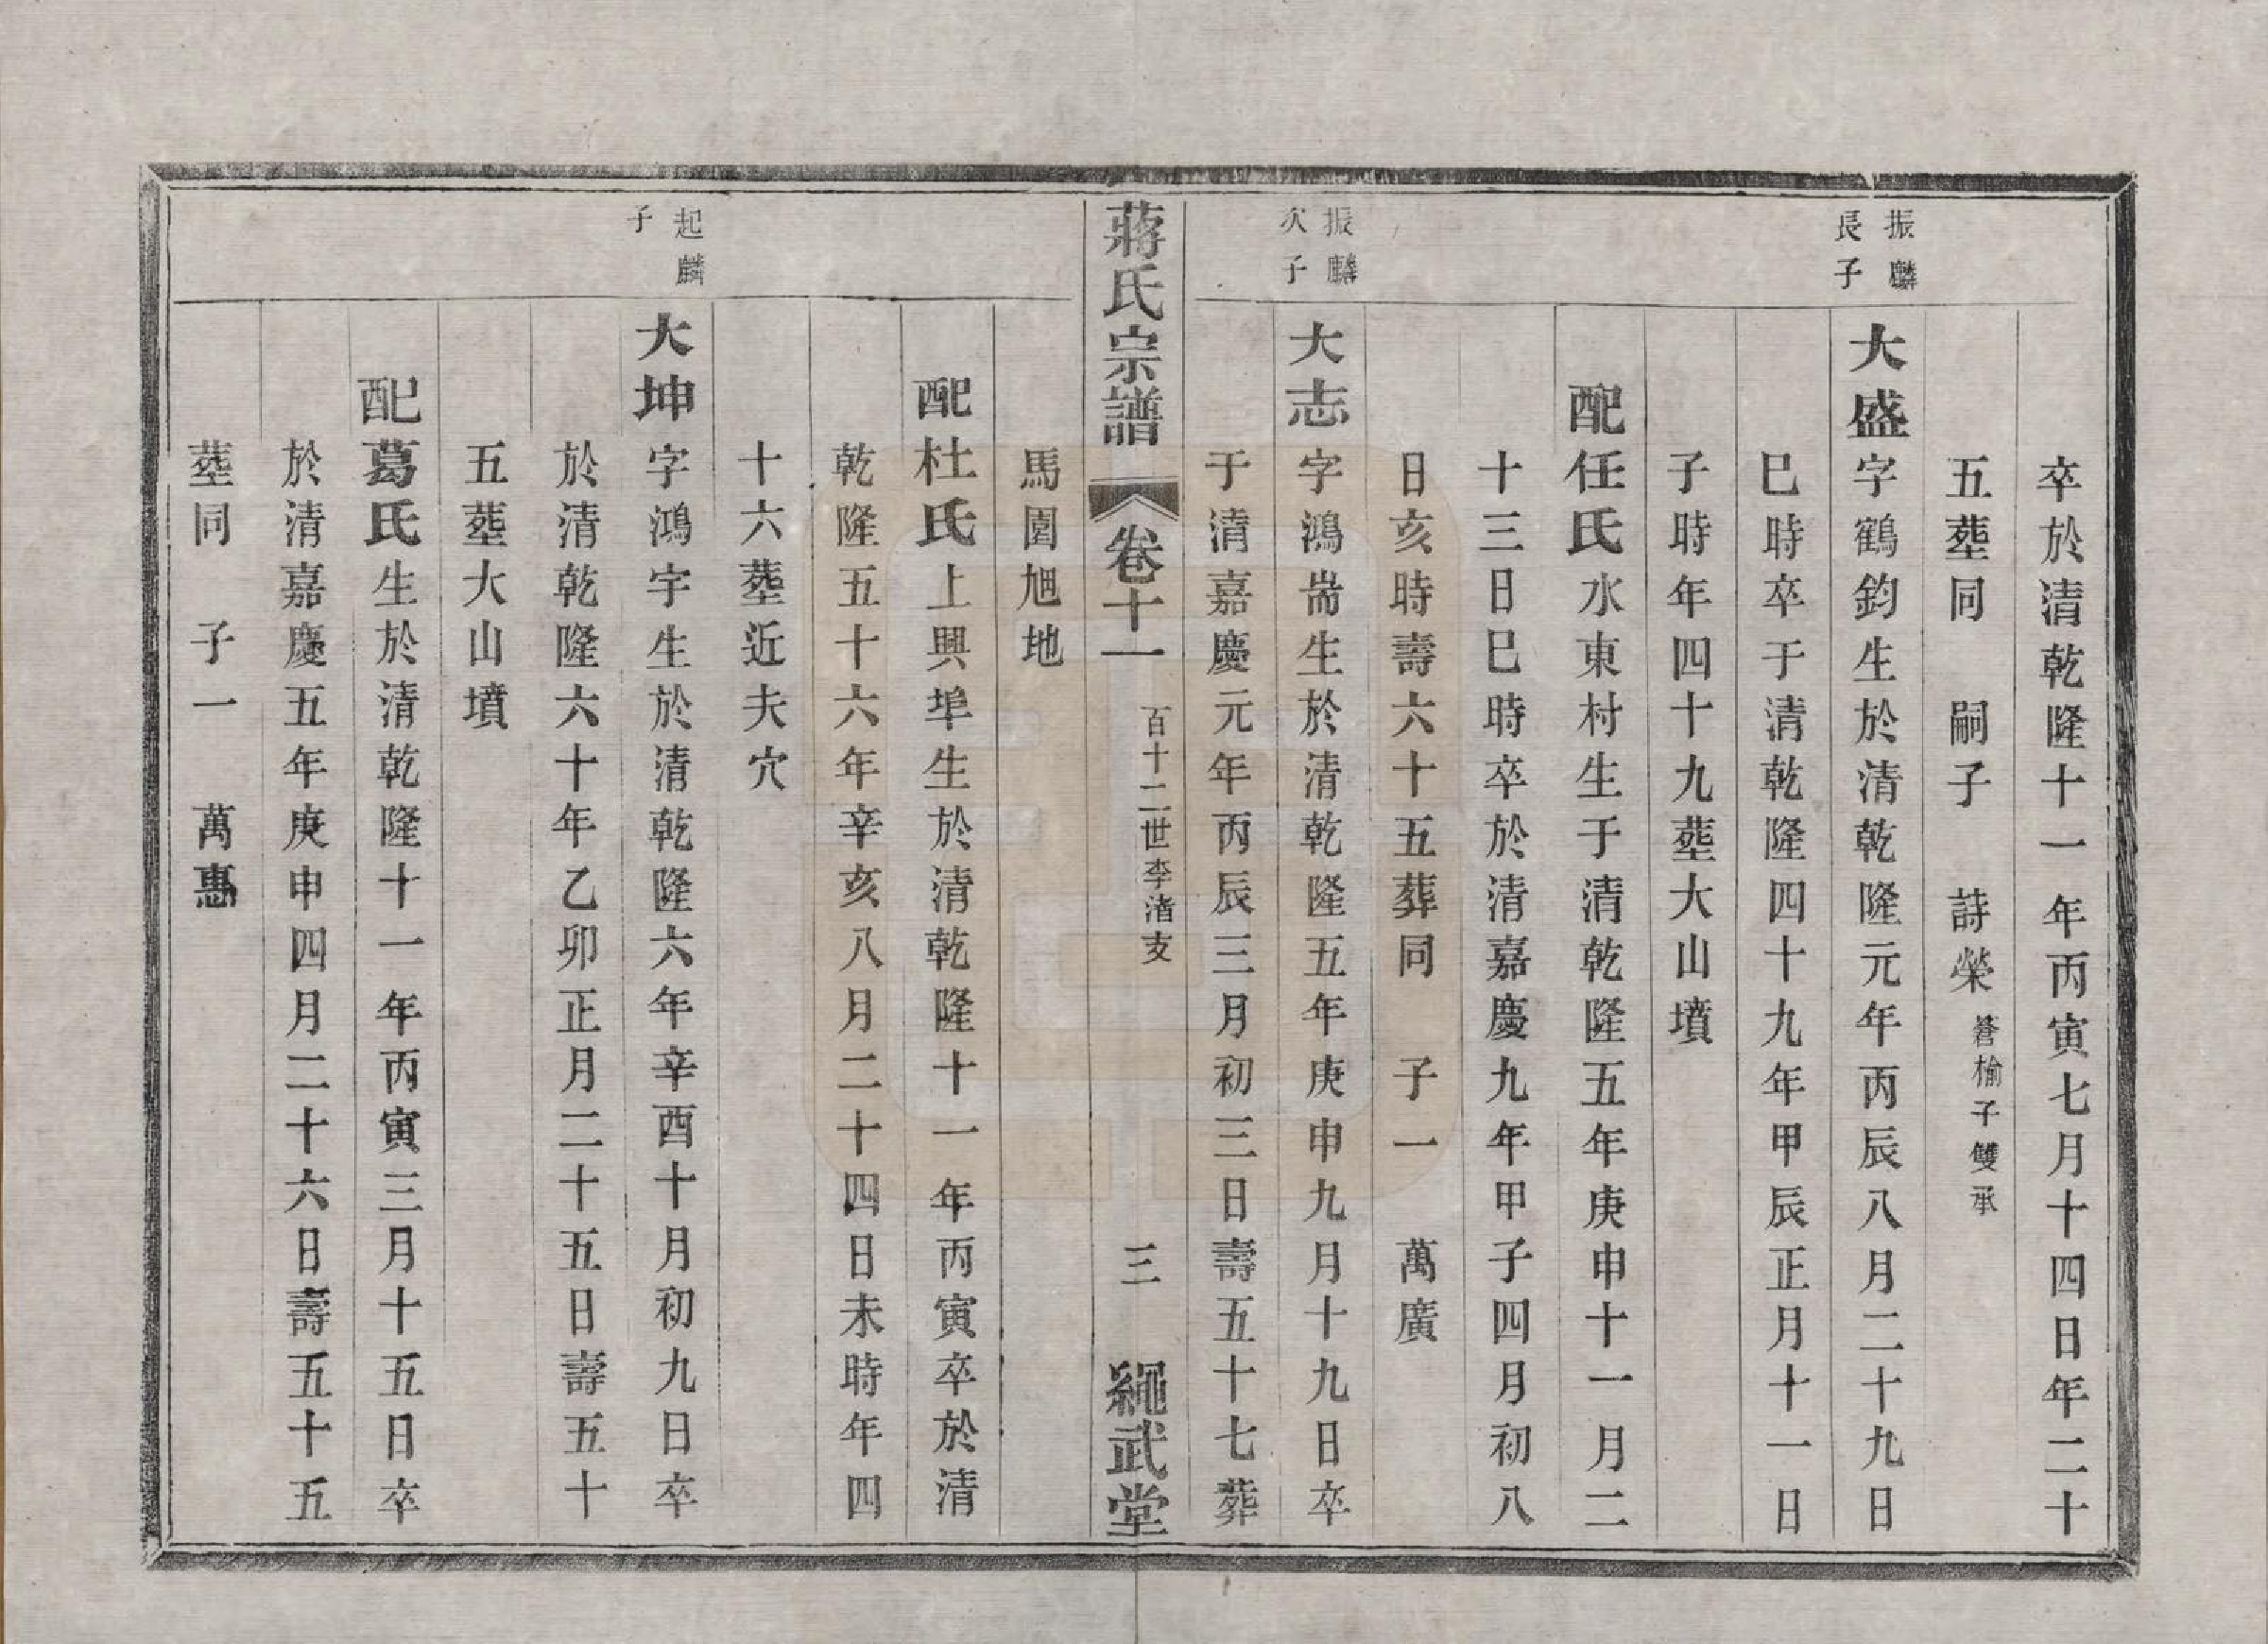 卒於清乾隆十一年丙寅七月十四日年二十
五塟同　嗣子　詩榮蒼榆子雙承
振麟長子
大盛字鶴鈞生於清乾隆元年丙辰八月二十九日
巳時卒于清乾隆四十九年甲辰正月十一日
子時年四十九塟大山墳
配任氏水東村生于清乾隆五年庚申十一月二
十三日巳時卒於清嘉慶九年甲子四月初八
日亥時壽六十五葬同　子一　萬廣
振麟次子
大志字鴻耑生於清乾隆五年庚申九月十九日卒
于清嘉慶元年丙辰三月初三日壽五十七葬
蔣氏宗譜　卷十一　百十二世李渚支　三　繩武堂
馬園旭地
配杜氏上興埠生於清乾隆十一年丙寅卒於清
乾隆五十六年辛亥八月二十四日未時年四
十六塟近夫穴
起麟子
大坤字鴻宇生於清乾隆六年辛酉十月初九日卒
於清乾隆六十年乙卯正月二十五日壽五十
五塟大山墳
配葛氏生於清乾隆十一年丙寅三月十五日卒
於清嘉慶五年庚申四月二十六日壽五十五
塟同　子一　萬惠